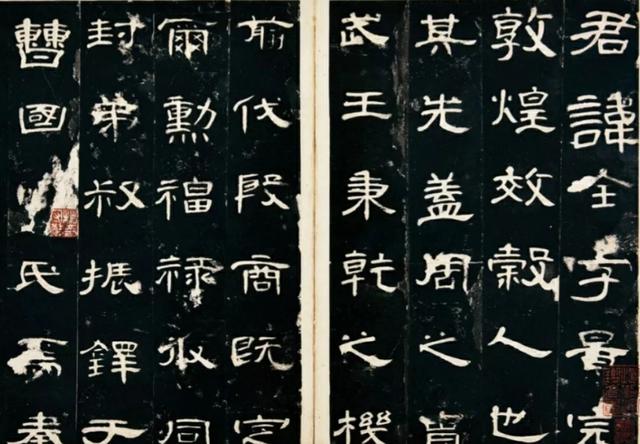 君諱全字景完
敦煌效穀人也
其先蓋周之胄
武王秉乾之機
翦伐殷商既定
爾勳福祿攸同
封弟叔振鐸于
曹國氏焉秦